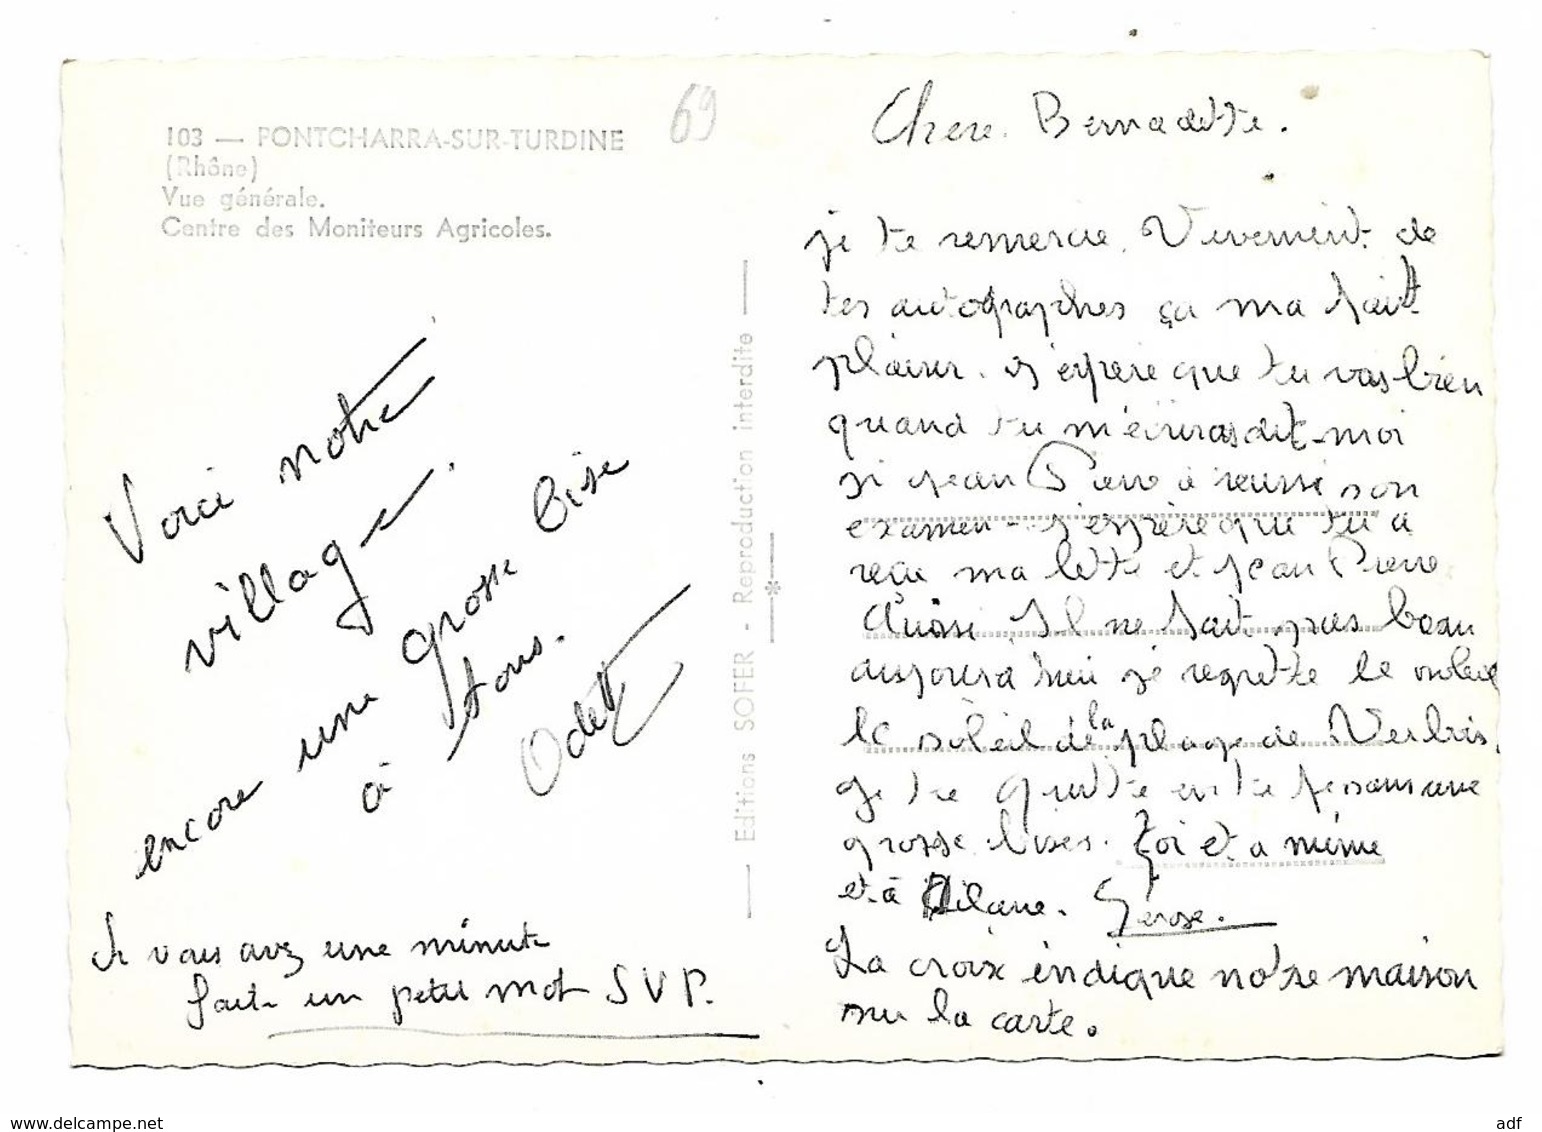 103 — PONTCHARRA-SUR-TURDINE
(Rhône)
Vue générale.
Centre des Moniteurs Agricoles.
69
Voici notre
village.
encore une grosse bise
à tous.
Odette
si vous avez une minute
faite un petit mot SVP.
— Editions SOFER - Reproduction interdite —
Chere Bernadette.
je te remercie Vivement de
tes autographes ça ma fait
plaisir. j'espère que tu vas bien
quand tu m'écriras dit-moi
si jean Pierre à reussi son
examen - j'espère que tu a
reçu ma lette et jean Pierre
Aussi. Il ne fait pas beau
aujourd'hui je regrette le
le soleil de la plage de
je te quitte en te fessant une
grosse bises. toi et a mème
et à
La croix indique notre maison
sur la carte.
adf
www.delcampe.net